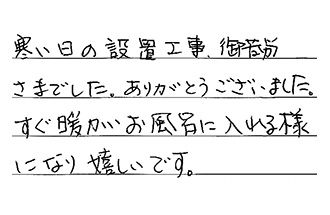 寒い日の設置工事、御苦労
さまでした。ありがとうございました。
すぐ暖かいお風呂に入れる様
になり嬉しいです。